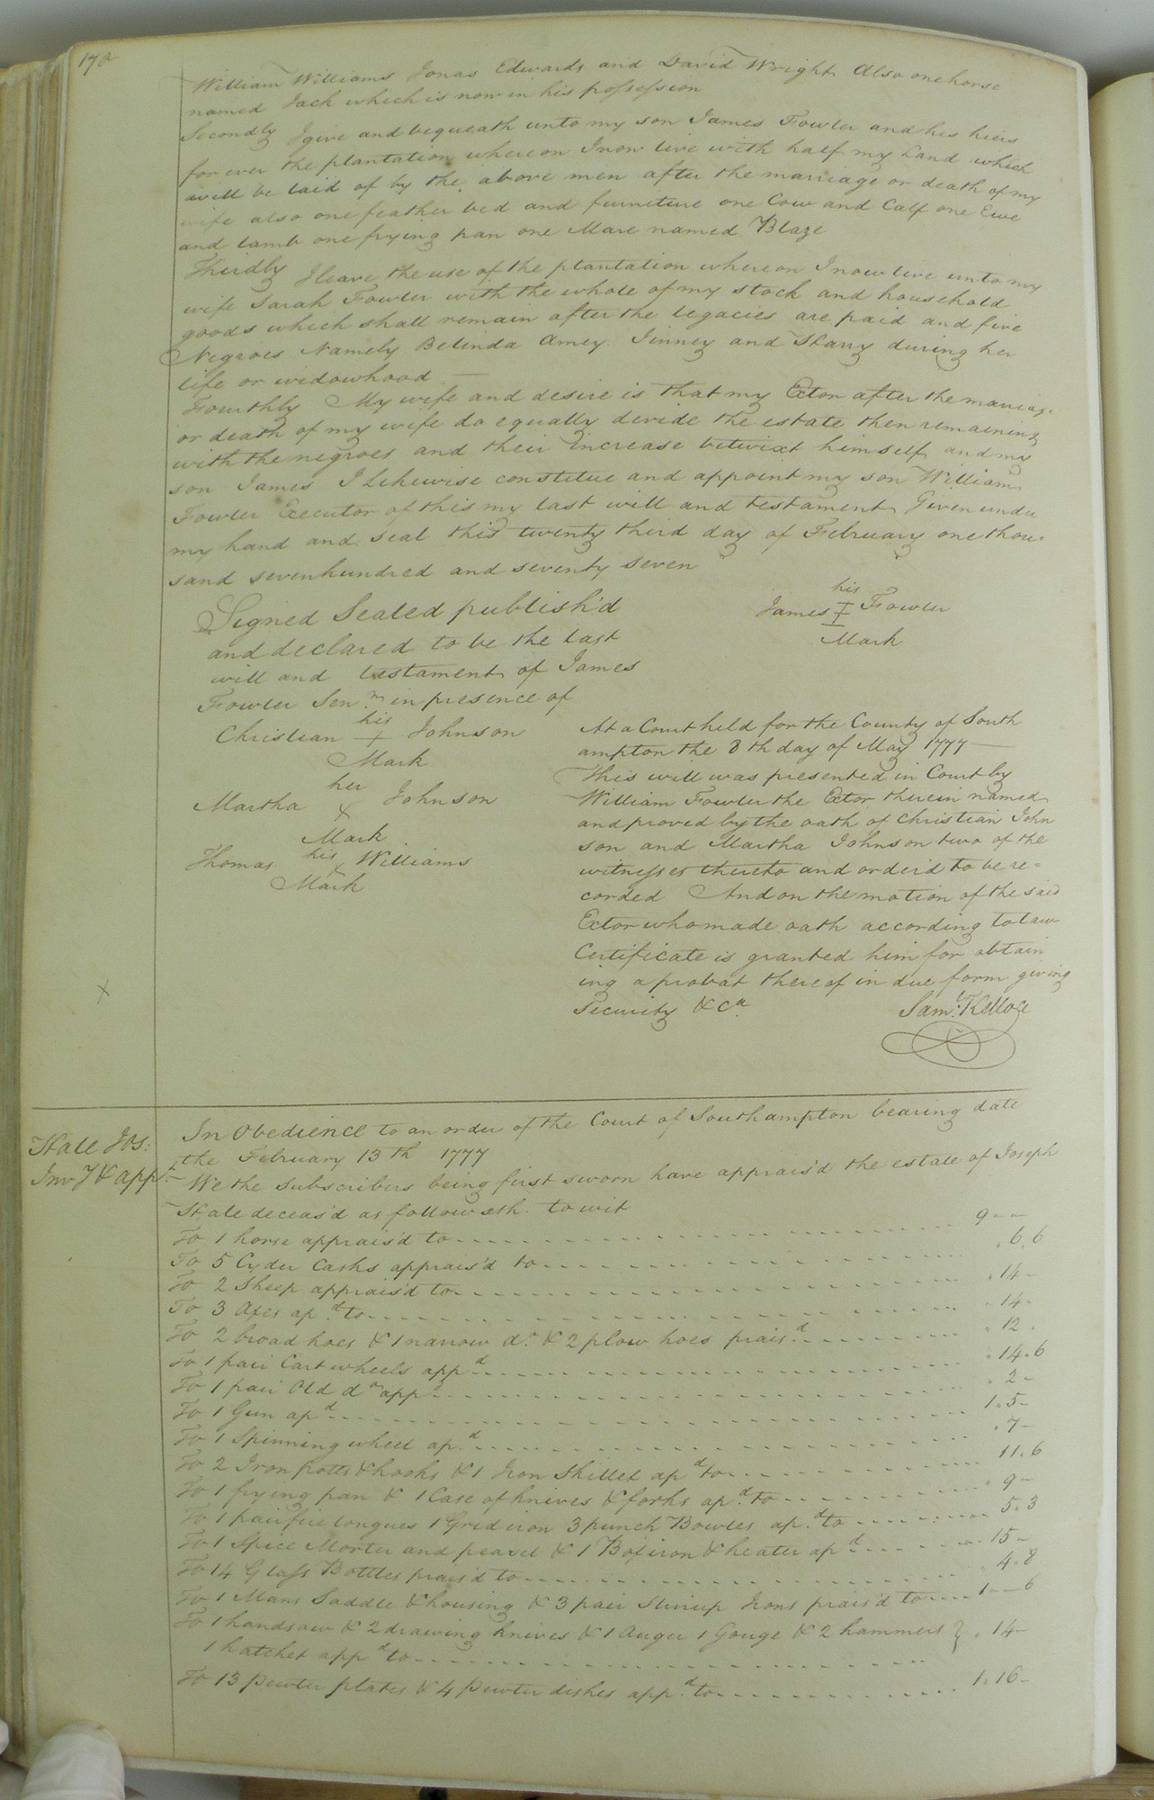 170
William Williams Jonas Edwards and David Wright Also one horse
named Jack which is now in his possession
Secondly I give and bequeath unto my son James Fowler and his heirs
for ever the plantation whereon I now live with half my Land which
will be laid of by the above men after the marriage or death of my
wife also one feather bed and furniture one Cow and Calf one Ewe
and lamb one frying pan one Mare named Blaze
Thirdly I leave the use of the plantation whereon I now live unto my
wife Sarah Fowler with the whole of my stock and household
goods which shall remain after the legacies are paid and five
Negroes Namely Belinda Amey Jinney and Harry during her
life or widowhood —
Fourthly My wife and desire is that my Exton after the marriage
or death of my wife do equally divide the estate then remaining
with the negroes and their increase betwixt himself and my
son James I Likewise constitue and appoint my son William
Fowler Executor of this my last will and testament Given under
my hand and seal this twenty third day of February one thou-
sand sevenhundred and seventy seven
Signed Sealed publish'd
and declared to be the last
will and testament of James
Fowler Senr in presence of
his
James I Fowler
Mark
his
Christian + Johnson
Mark
her
Martha x Johnson
Mark
his
Thomas x Williams
Mark
At a Court held for the County of South
ampton the 8th day of May 1777 —
This will was presented in Court by
William Fowler the Extor therein named
and proved by the oath of Christian John
son and Martha Johnson two of the
witnesses thereto and order'd to be re=
corded And on the motion of the said
Extor who made oath according to law
Certificate is granted him for obtain
ing a probat thereof in due form giving
Security &ca
Saml Kelloe
x
Hale Jos:
Invy & appt
In Obedience to an order of the Court of Southampton bearing date
the February 13th 1777
We the Subscribers being first sworn have apprais'd the estate of Joseph
Hale deceas'd as followeth to wit
To 1 horse apprais'd to 9 - -
To 5 Cyder Casks apprais'd to .6.6
To 2 Sheep apprais'd to .14-
To 3 Axes apd to .14.
To 2 broad hoes & 1 narrow do & 2 plow hoes praisd .12.
To 1 pair Cart wheels appd .14.6
To 1 pair Old do appd .2-
To 1 Gun apd 1.5-
To 1 Spinning wheel apd .7-
To 2 Iron potts & hooks & 1 Iron Skillet apd to 11.6
To 1 frying pan & 1 Case of knives & forks apd to .9-
To 1 pair fire tongues 1 Gridiron 3 punch Bowles apd to 5.3
To 1 Spice Morter and peasel & 1 Box iron & heater apd .15-
To 14 Glass Bottles prais'd to .4.8
To 1 Mans Saddle & housing & 3 pair Stirrup Irons prais'd to 1--6
To 1 handsaw & 2 drawing knives & 1 Auger 1 Gouge & 2 hammers } .14-
1 hatchet appd to
To 13 pewter plates & 4 pewter dishes appd to 1.16-